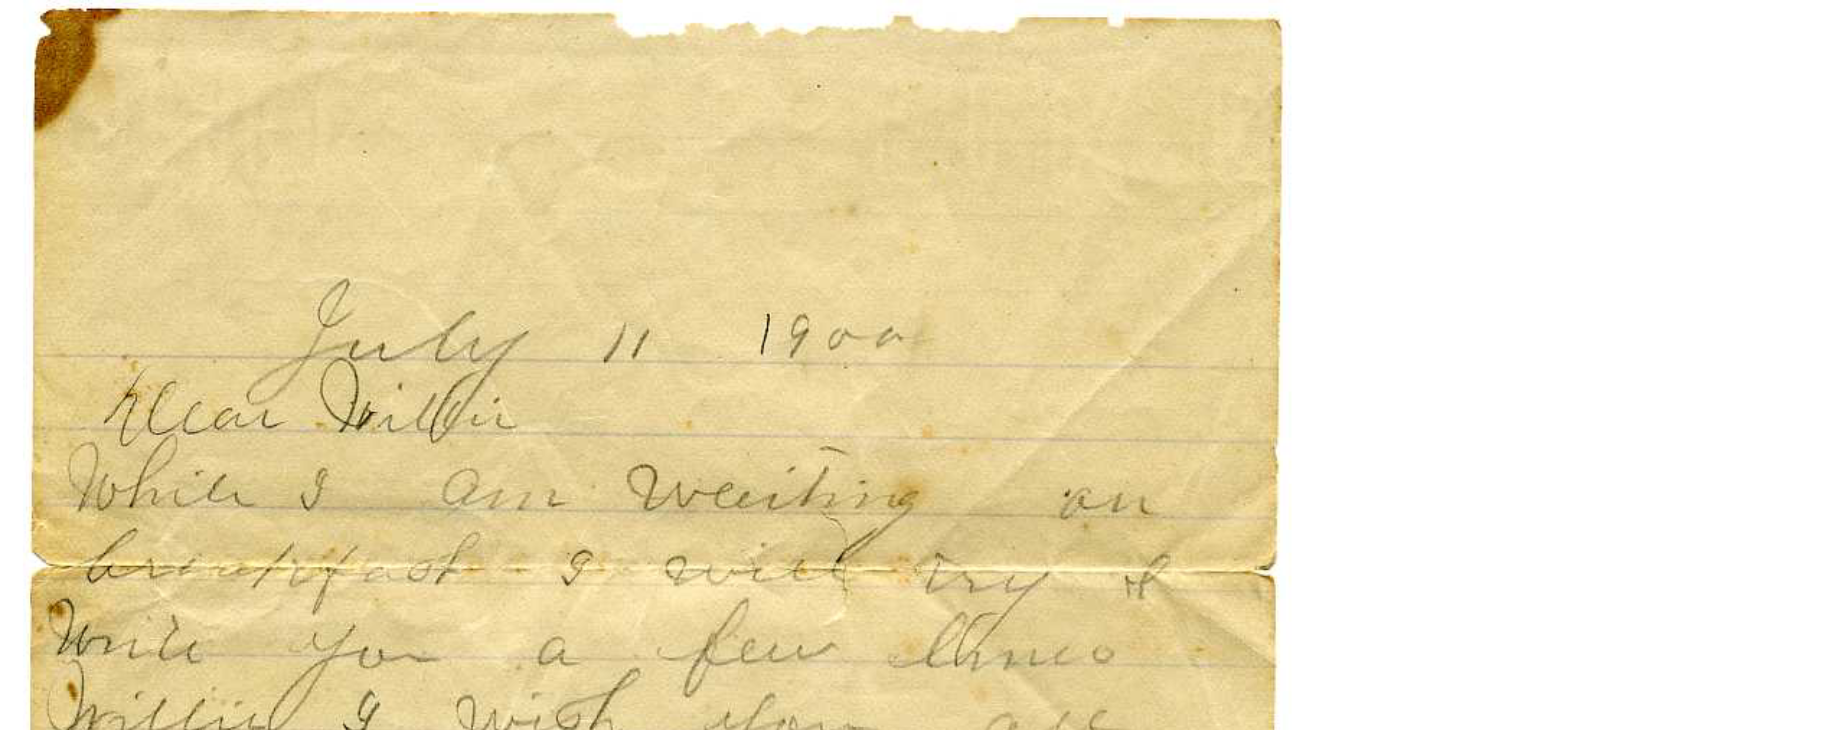 July 11 1900
Dear Willie
While I am Waiting on
breakfast I will try &
Write you a few lines
Willie I wish you all